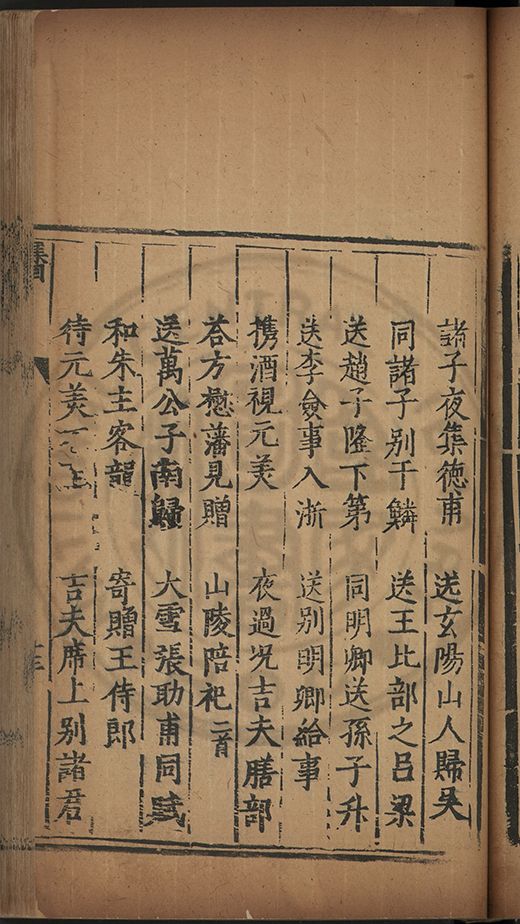 諸子夜集徳甫　送玄陽山人歸吴
同諸子别于鱗　送王比部之吕梁
送趙子隆下第　同明卿送孫子升
送李僉事入浙　送别明卿給事
携酒視元美　夜過況吉夫膳部
荅方懋藩見贈　山陵陪祀二首
送萬公子南歸　大雪張助甫同賦
和朱主客韻　寄贈王侍郎
待元美　吉夫席上别諸君